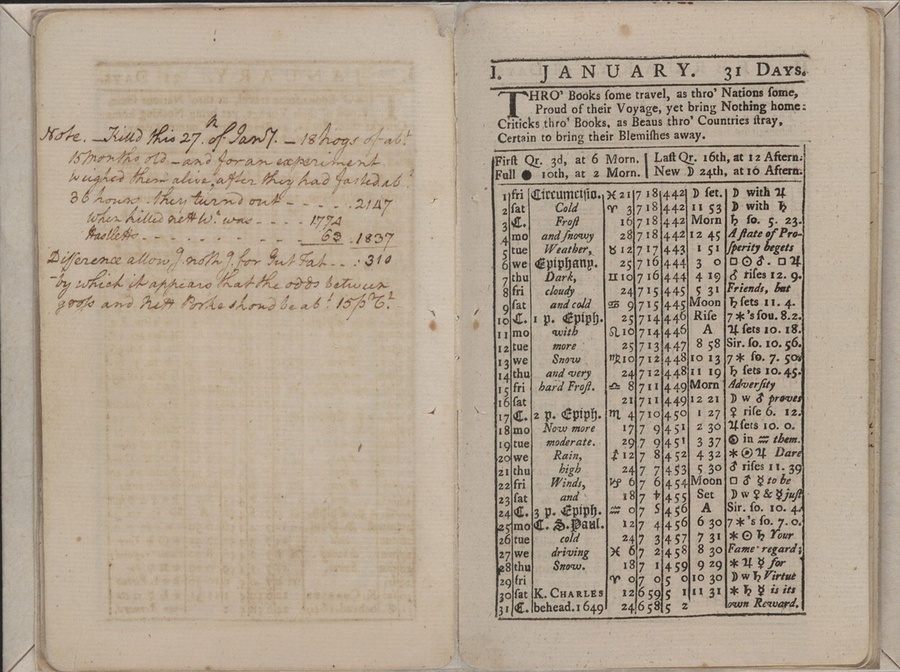 Note. — Killd this 27.th of Jany. — 18 hogs of abt.
15 months old — and for an experiment
weighed them alive, after they had fasted abt.
36 hours. they turnd out - - - - - . 2147
When killed nett Wt. was - - - . 1774
Hasletts - - - - - - - - - - 63 . 1837
Difference allow'g noth'g for Gut Fat - - . : 310
by which it appears that the odds between
gross and Nett Porke should be abt. 15 p Ct.
I. JANUARY. 31 DAYS.
THRO' Books ſome travel, as thro' Nations ſome,
Proud of their Voyage, yet bring Nothing home:
Criticks thro' Books, as Beaus thro' Countries ſtray,
Certain to bring their Blemiſhes away.
Firſt Qr. 3d, at 6 Morn. | Laſt Qr. 16th, at 12 Aftern.
Full ● 10th, at 2 Morn. | New ☽ 24th, at 10 Aftern.
1 fri Circumciſio. ♓ 21 7 18 4 42 ☽ ſet. ☽ with ♃
2 ſat Cold ♈ 3 7 18 4 42 11 53 ☽ with ♄
3 C. Froſt 16 7 18 4 42 Morn ♄ ſo. 5. 23.
4 mo and ſnowy 28 7 18 4 42 12 45 A ſtate of Pro-
5 tue Weather, ♉ 12 7 17 4 43 1 51 ſperity begets
6 we Epiphany. 25 7 16 4 44 3 0 □ ☉ ♂. □ ♃
7 thu Dark, ♊ 10 7 16 4 44 4 19 ♂ riſes 12. 9.
8 fri cloudy 24 7 15 4 45 5 31 Friends, but
9 ſat and cold ♋ 9 7 15 4 45 Moon ♄ ſets 11. 4.
10 C. 1 p. Epiph. 25 7 14 4 46 Riſe 7 * 's ſou. 8. 2.
11 mo with ♌ 10 7 14 4 46 A ♃ ſets 10. 18.
12 tue more 25 7 13 4 47 8 58 Sir. ſo. 10. 56.
13 we Snow ♍ 10 7 12 4 48 10 13 7 * ſo. 7. 50.
14 thu and very 24 7 12 4 48 11 19 ♄ ſets 10. 45.
15 fri hard Froſt. ♎ 8 7 11 4 49 Morn Adverſity
16 ſat 21 7 11 4 49 12 21 ☽ w ♂ proves
17 C. 2 p. Epiph. ♏ 4 7 10 4 50 1 27 ♀ riſe 6. 12.
18 mo Now more 17 7 9 4 51 2 30 ♃ ſets 10. 0.
19 tue moderate. 29 7 9 4 51 3 37 ☉ in ♒ them.
20 we Rain, ♐ 12 7 8 4 52 4 32 * ☉ ♃ Dare
21 thu high 24 7 7 4 53 5 30 ♂ riſes 11. 39
22 fri Winds, ♑ 6 7 6 4 54 Moon □ ♂ ☿ to be
23 ſat and 18 7 † 4 55 Set ☽ w ♀ & ☿ juſt
24 C. 3 p. Epiph. ♒ 0 7 5 4 56 A Sir. ſo. 10. 4.
25 mo C. S. Paul. 12 7 4 4 56 6 30 7 * 's ſo. 7. 0.
26 tue cold 24 7 3 4 57 7 31 * ☉ ♄ Your
27 we driving ♓ 6 7 2 4 58 8 30 Fame regard;
28 thu Snow. 18 7 1 4 59 9 29 * ♃ ☿ for
29 fri ♈ 0 7 0 5 0 10 30 ☽ w ♄ Virtue
30 ſat K. CHARLES 12 6 59 5 1 11 31 * ♄ ☿ is its
31 C. behead. 1649 24 6 58 5 2 own Reward.